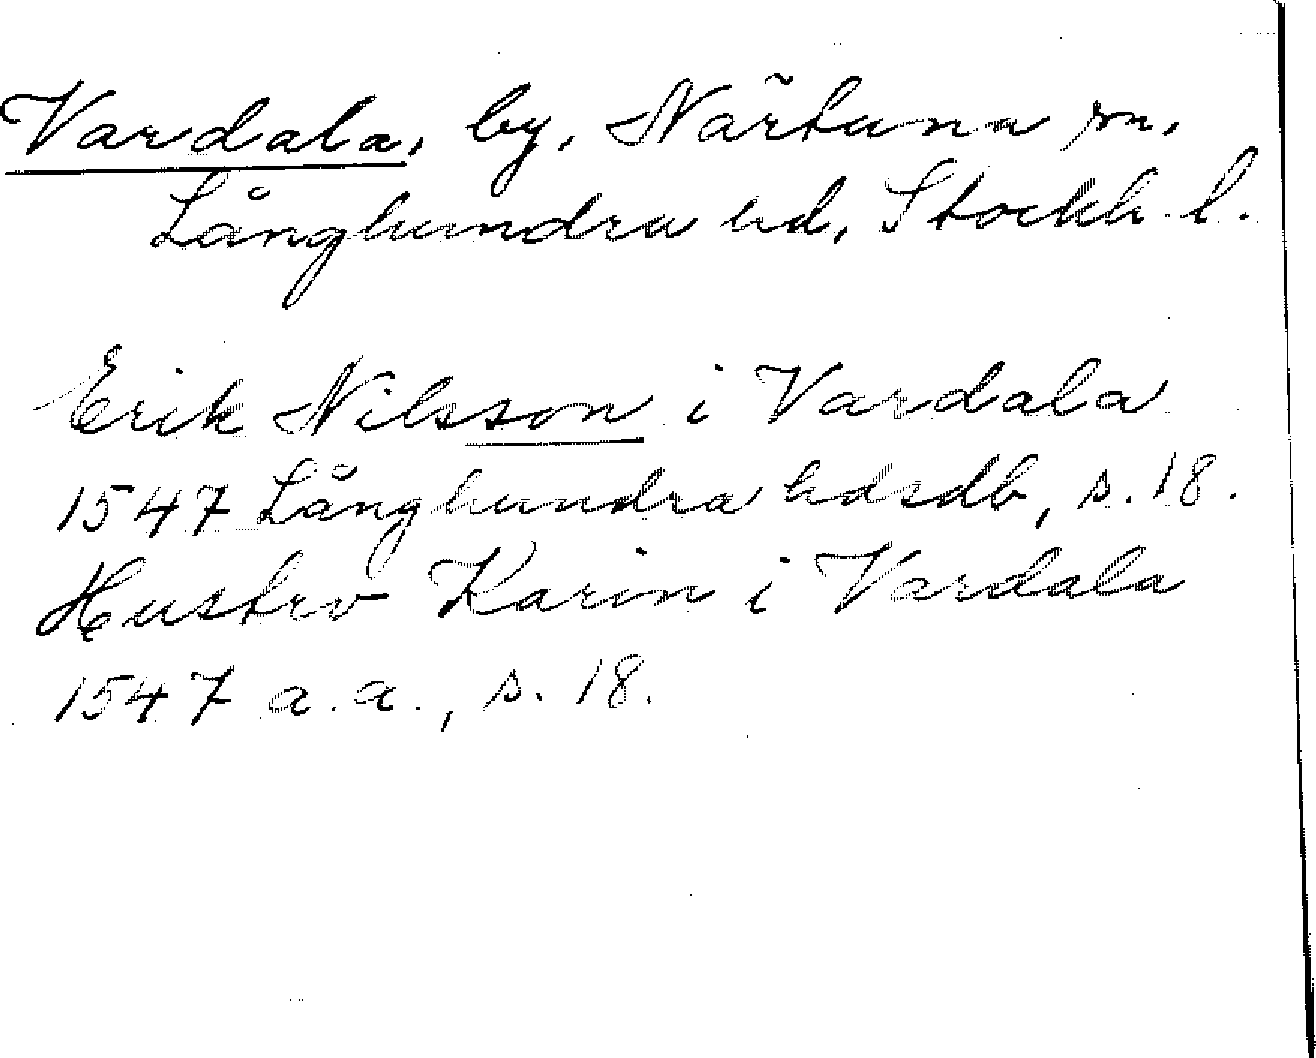 Vardala, by, Närtuna sn,
Långhundra hd, Stockh. l.
Erik Nilsson i Vardala
1547 Långhundra hdsdb, s. 18.
Hustrv Karin i Vardala
1547 a. a., s. 18.